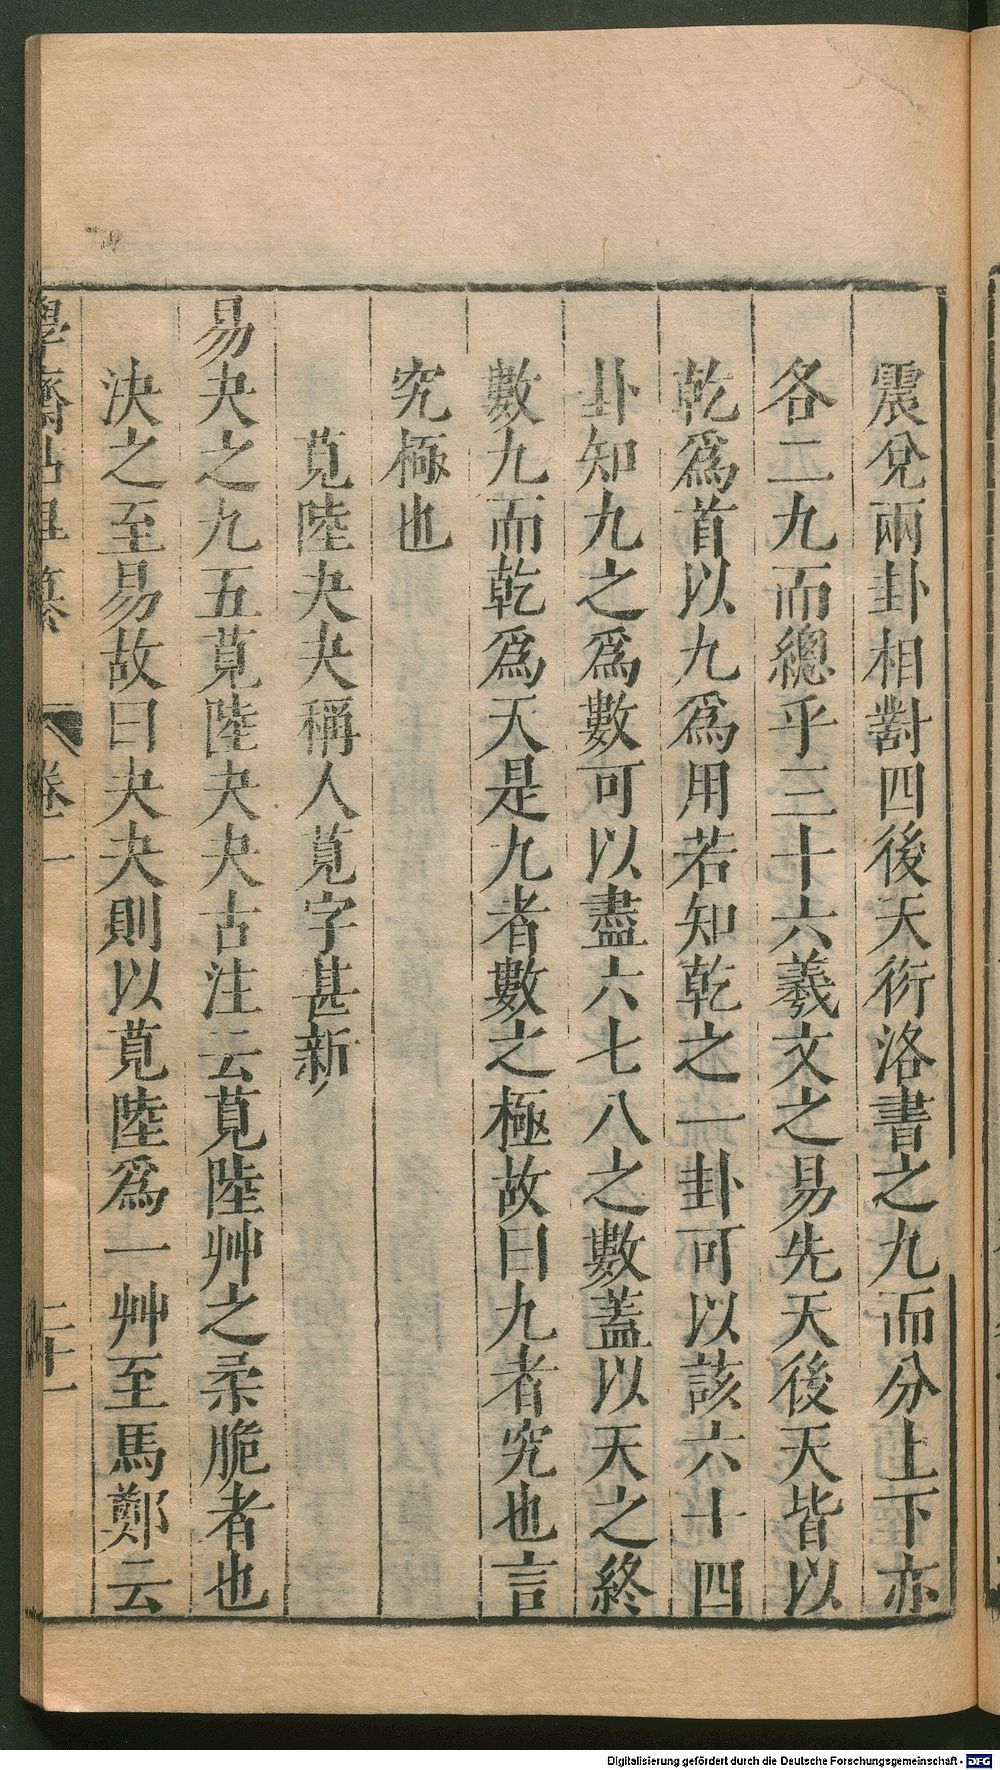 震兌兩卦相對四後天衍洛書之九而分上下亦
各二九而總乎三十六羲文之易先天後天皆以
乾爲首以九爲用若知乾之一卦可以該六十四
卦知九之爲數可以盡六七八之數蓋以天之終
數九而乾爲天是九者數之極故曰九者究也言
究極也
莧陸夬夬稱人莧字甚新
易夬之九五莧陸夬夬古注云莧陸艸之柔脆者也
決之至易故曰夬夬則以莧陸爲一艸至馬鄭云
學齋佔畢纂 卷一 二十一
Digitalisierung gefördert durch die Deutsche Forschungsgemeinschaft - DFG